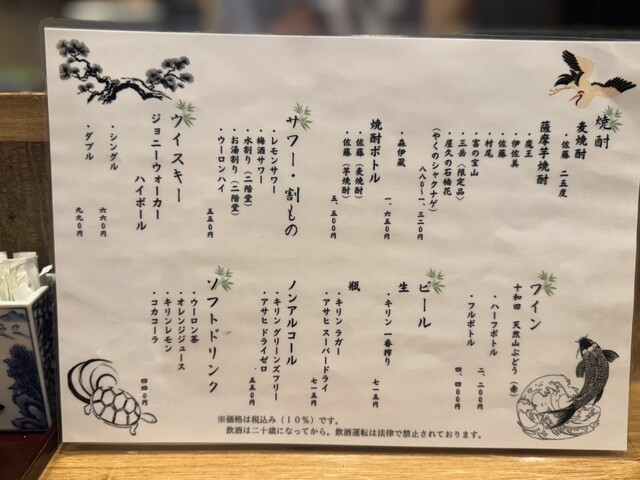 焼酎
麦焼酎
・佐藤 二五度
薩摩芋焼酎
・魔王
・伊佐美
・佐藤
・村尾
・富の宝山
・三岳(限定品)
・屋久の石楠花
(やくのシャクナゲ)
八八〇~一、三二〇円
・森伊蔵
一、六五〇円
焼酎ボトル
・佐藤(麦焼酎)
・佐藤(芋焼酎)
五、五〇〇円
サワー・割もの
・レモンサワー
・梅酒サワー
・水割り(二階堂)
・お湯割り(二階堂)
・ウーロンハイ
五五〇円
ウイスキー
ジョニーウォーカー
ハイボール
・シングル
六六〇円
・ダブル
九九〇円
ワイン
十和田 天然山ぶどう(赤)
・ハーフボトル
二、二〇〇円
・フルボトル
四、四〇〇円
ビール
生
・キリン 一番搾り
七一五円
瓶
・キリン ラガー
・アサヒ スーパードライ
七一五円
ノンアルコール
・キリン グリーンズフリー
・アサヒ ドライゼロ
五五〇円
ソフトドリンク
・ウーロン茶
・オレンジジュース
・キリンレモン
・コカコーラ
四四〇円
※価格は税込み(10%)です。
飲酒は二十歳になってから。飲酒運転は法律で禁止されております。